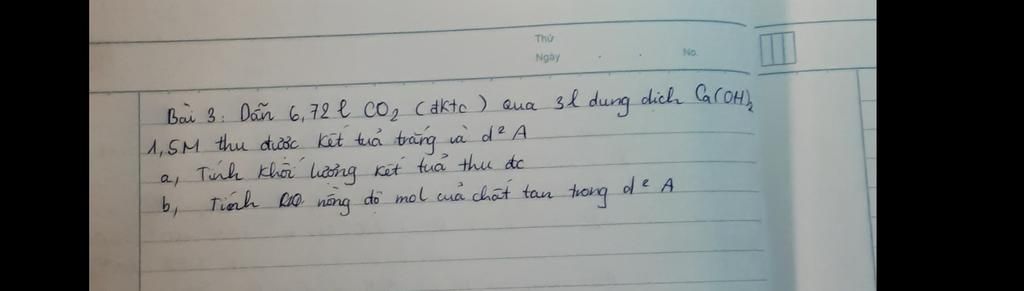 Thứ
Ngày
No.
Bài 3: Dẫn 6,72 l CO2 (đktc) qua 3l dung dịch Ca(OH)2
1,5M thu được kết tuả trắng và d² A
a, Tính khối lượng kết tuả thu đc
b, Tính nồng độ mol cuả chất tan trong d² A